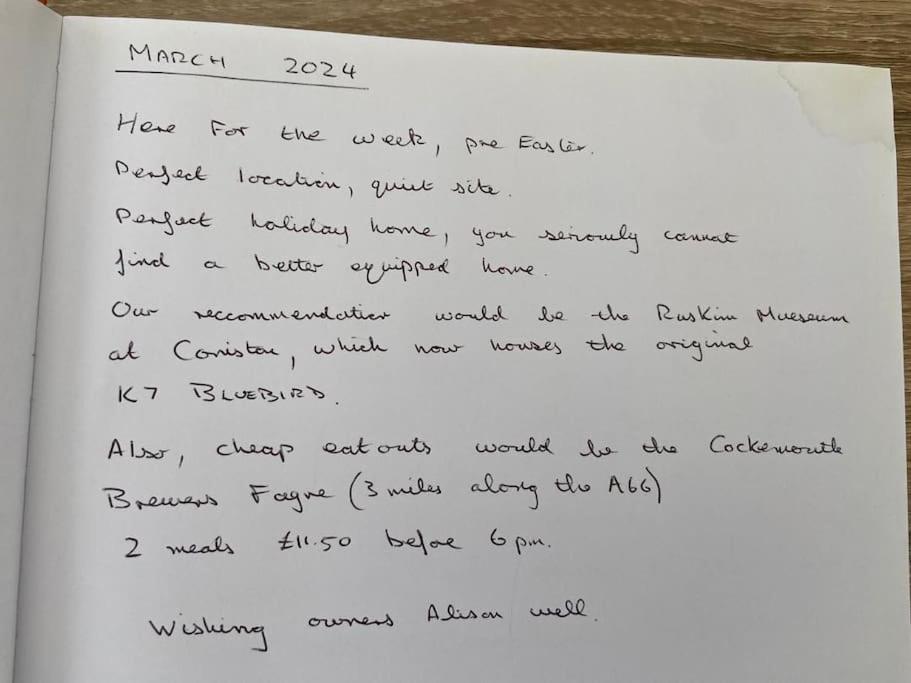 MARCH 2024
Here For the week, pre Easter.
Perfect location, quiet site.
Perfect holiday home, you seriously cannot
find a better equipped home.
Our reccommendation would be the Ruskin Mueseum
at Coniston, which now houses the original
K7 BLUEBIRD.
Also, cheap eat outs would be the Cockermouth
Brewers Fayre (3 miles along the A66)
2 meals £11.50 before 6 pm.
Wishing owners Alison well.